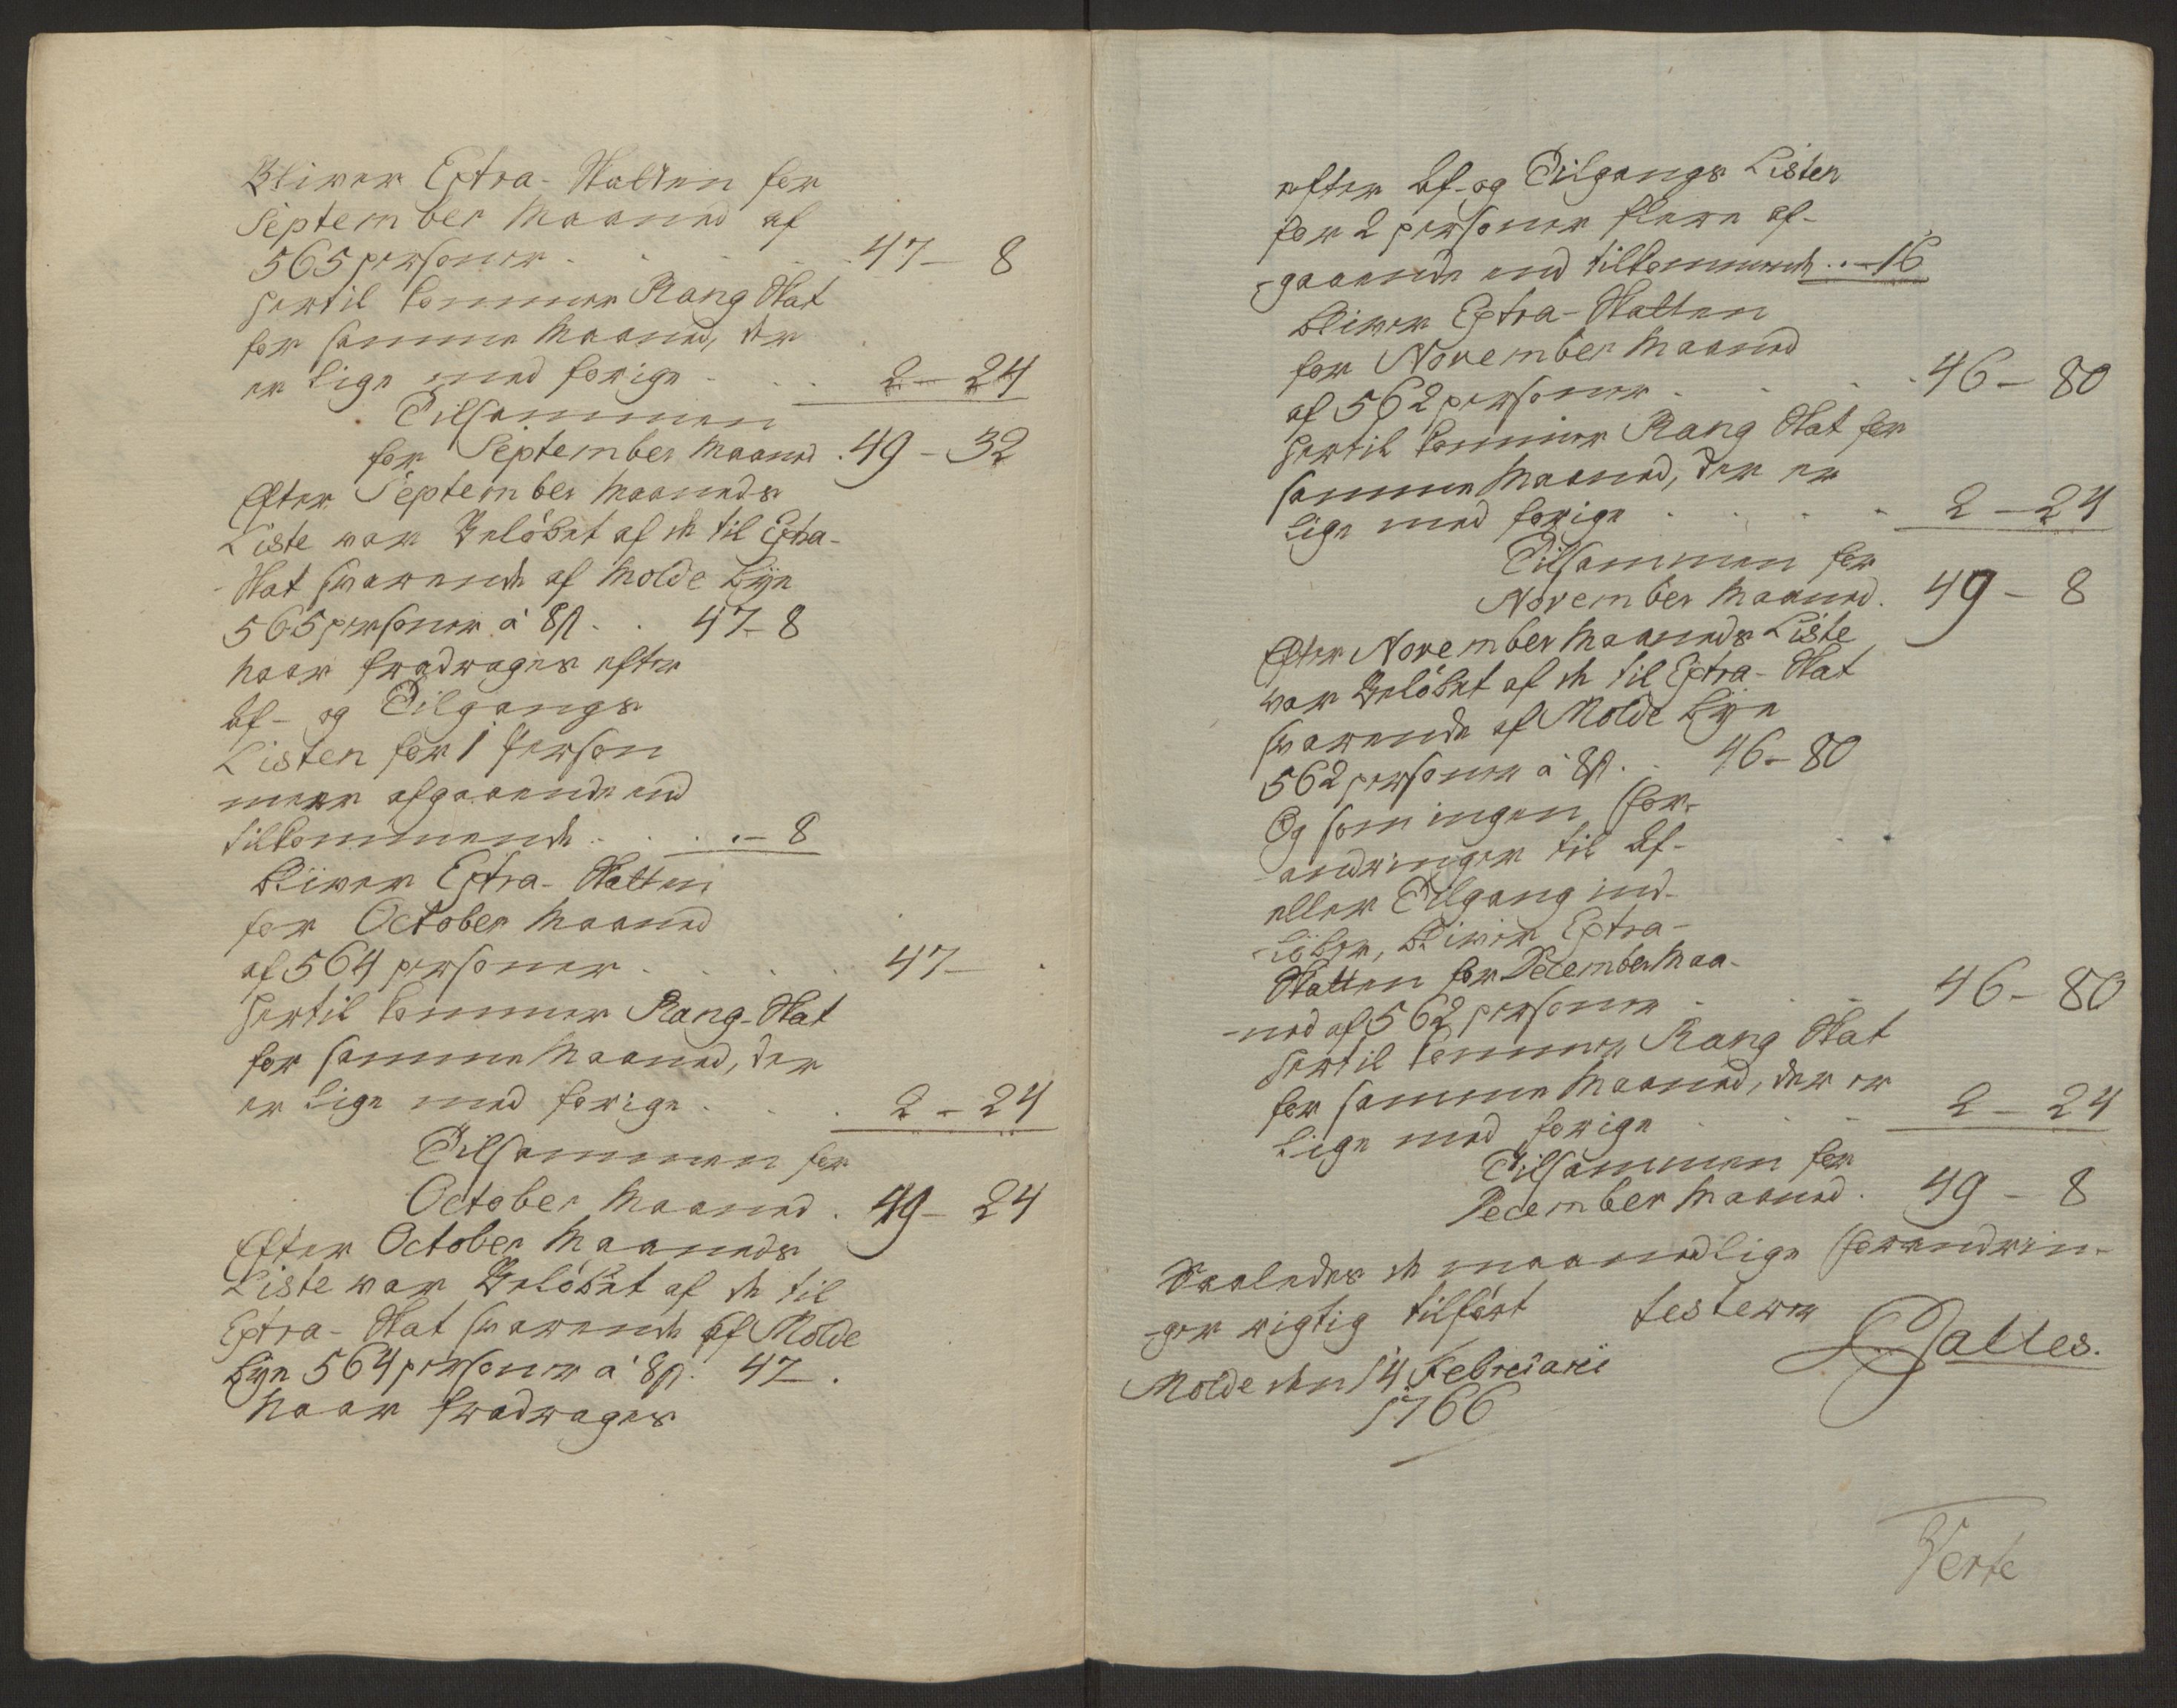 Bliver Extra-Skatten for
September Maaned af
565 personer . . . . . 47 - 8
Hertil kommer Rang Skat
for samme Maaned, der
er lige med forige . . . 2 - 24
Tilsammen
for September Maaned . 49 - 32
Efter September Maaneds
Liste var Beløbet af de til Extra-
Skat svarende af Molde Bye
565 personer à 8 s . . 47 - 8
Naar fradrages efter
Af- og Tilgangs
Listen for 1 Person
meer afgaaende end
tilkommende . . . . - 8
Bliver Extra-Skatten
for October Maaned
af 564 personer . . . . 47 - .
Hertil kommer Rang-Skat
for samme Maaned, der
er lige med forige . . . 2 - 24
Tilsammen for
October Maaned . 49 - 24
Efter October Maaneds
Liste var Beløbet af de til
Extra-Skat svarende af Molde
Bye 564 personer à 8 s . 47 - .
Naar fradrages
efter Af- og Tilgangs Listen
for 2 personer flere af-
gaaende end tilkommende . . - 16
Bliver Extra-Skatten
for November Maaned
af 562 personer . . . . 46 - 80
Hertil kommer Rang Skat for
samme Maaned, der er
lige med forige . . . . 2 - 24
Tilsammen for
November Maaned . 49 - 8
Efter November Maaneds Liste
var Beløbet af de til Extra-Skat
svarende af Molde Bye
562 personer à 8 s . . 46 - 80
Og som ingen for-
andringer til Af-
eller Tilgang ind-
løber, bliver Extra-
Skatten for December Maa-
-ned af 562 personer . . . 46 - 80
Hertil kommer Rang Skat
for samme Maaned, der er
lige med forige . . . 2 - 24
Tilsammen for
December Maaned . 49 - 8
Saaledes de maanedlige forandrin-
-ger rigtig tilført testerer
Molde den 14 Februarii
1766
Verte